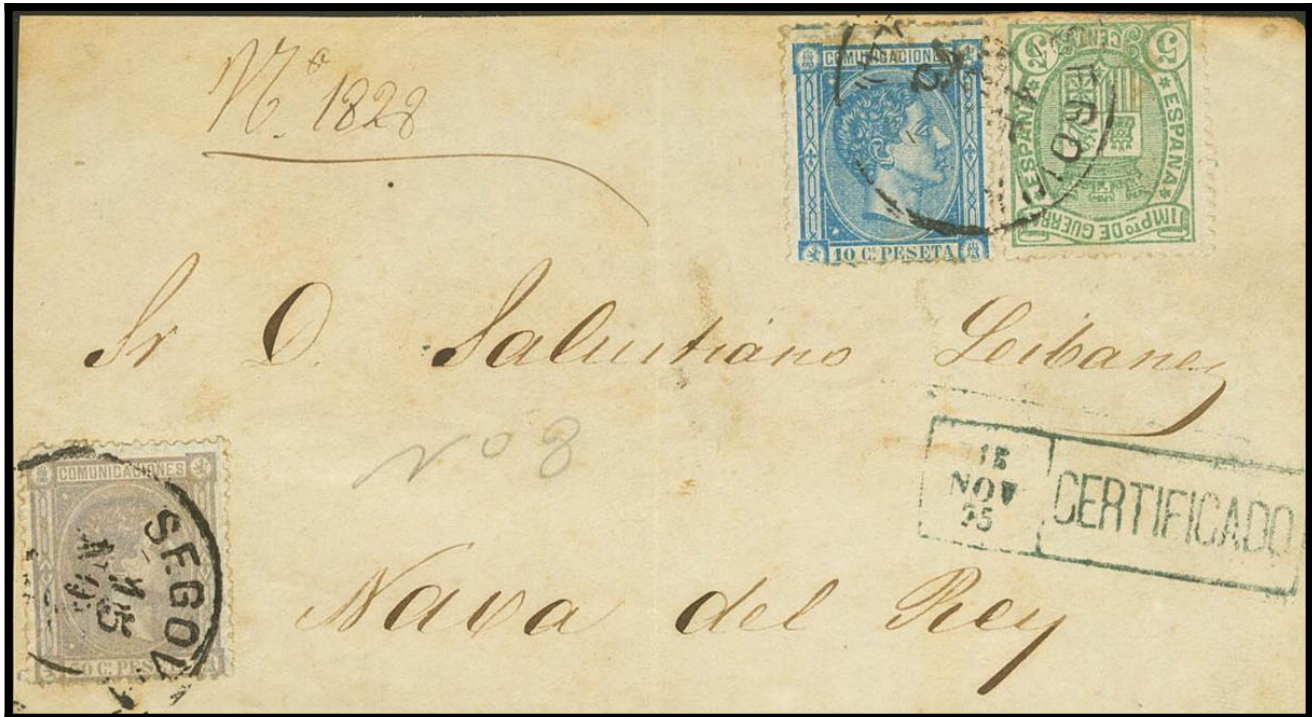 Nº. 1828
COMUNICACIONES
10 Cs. PESETA
5 CENT 5
ESPAÑA * ESPAÑA
IMPTO DE GUERRA
Sr D. Salustiano Leibanez
Nº 8
15
NOV
75
CERTIFICADO
COMUNICACIONES
Cs. PESETA
SEGOV
15
Nava del Rey